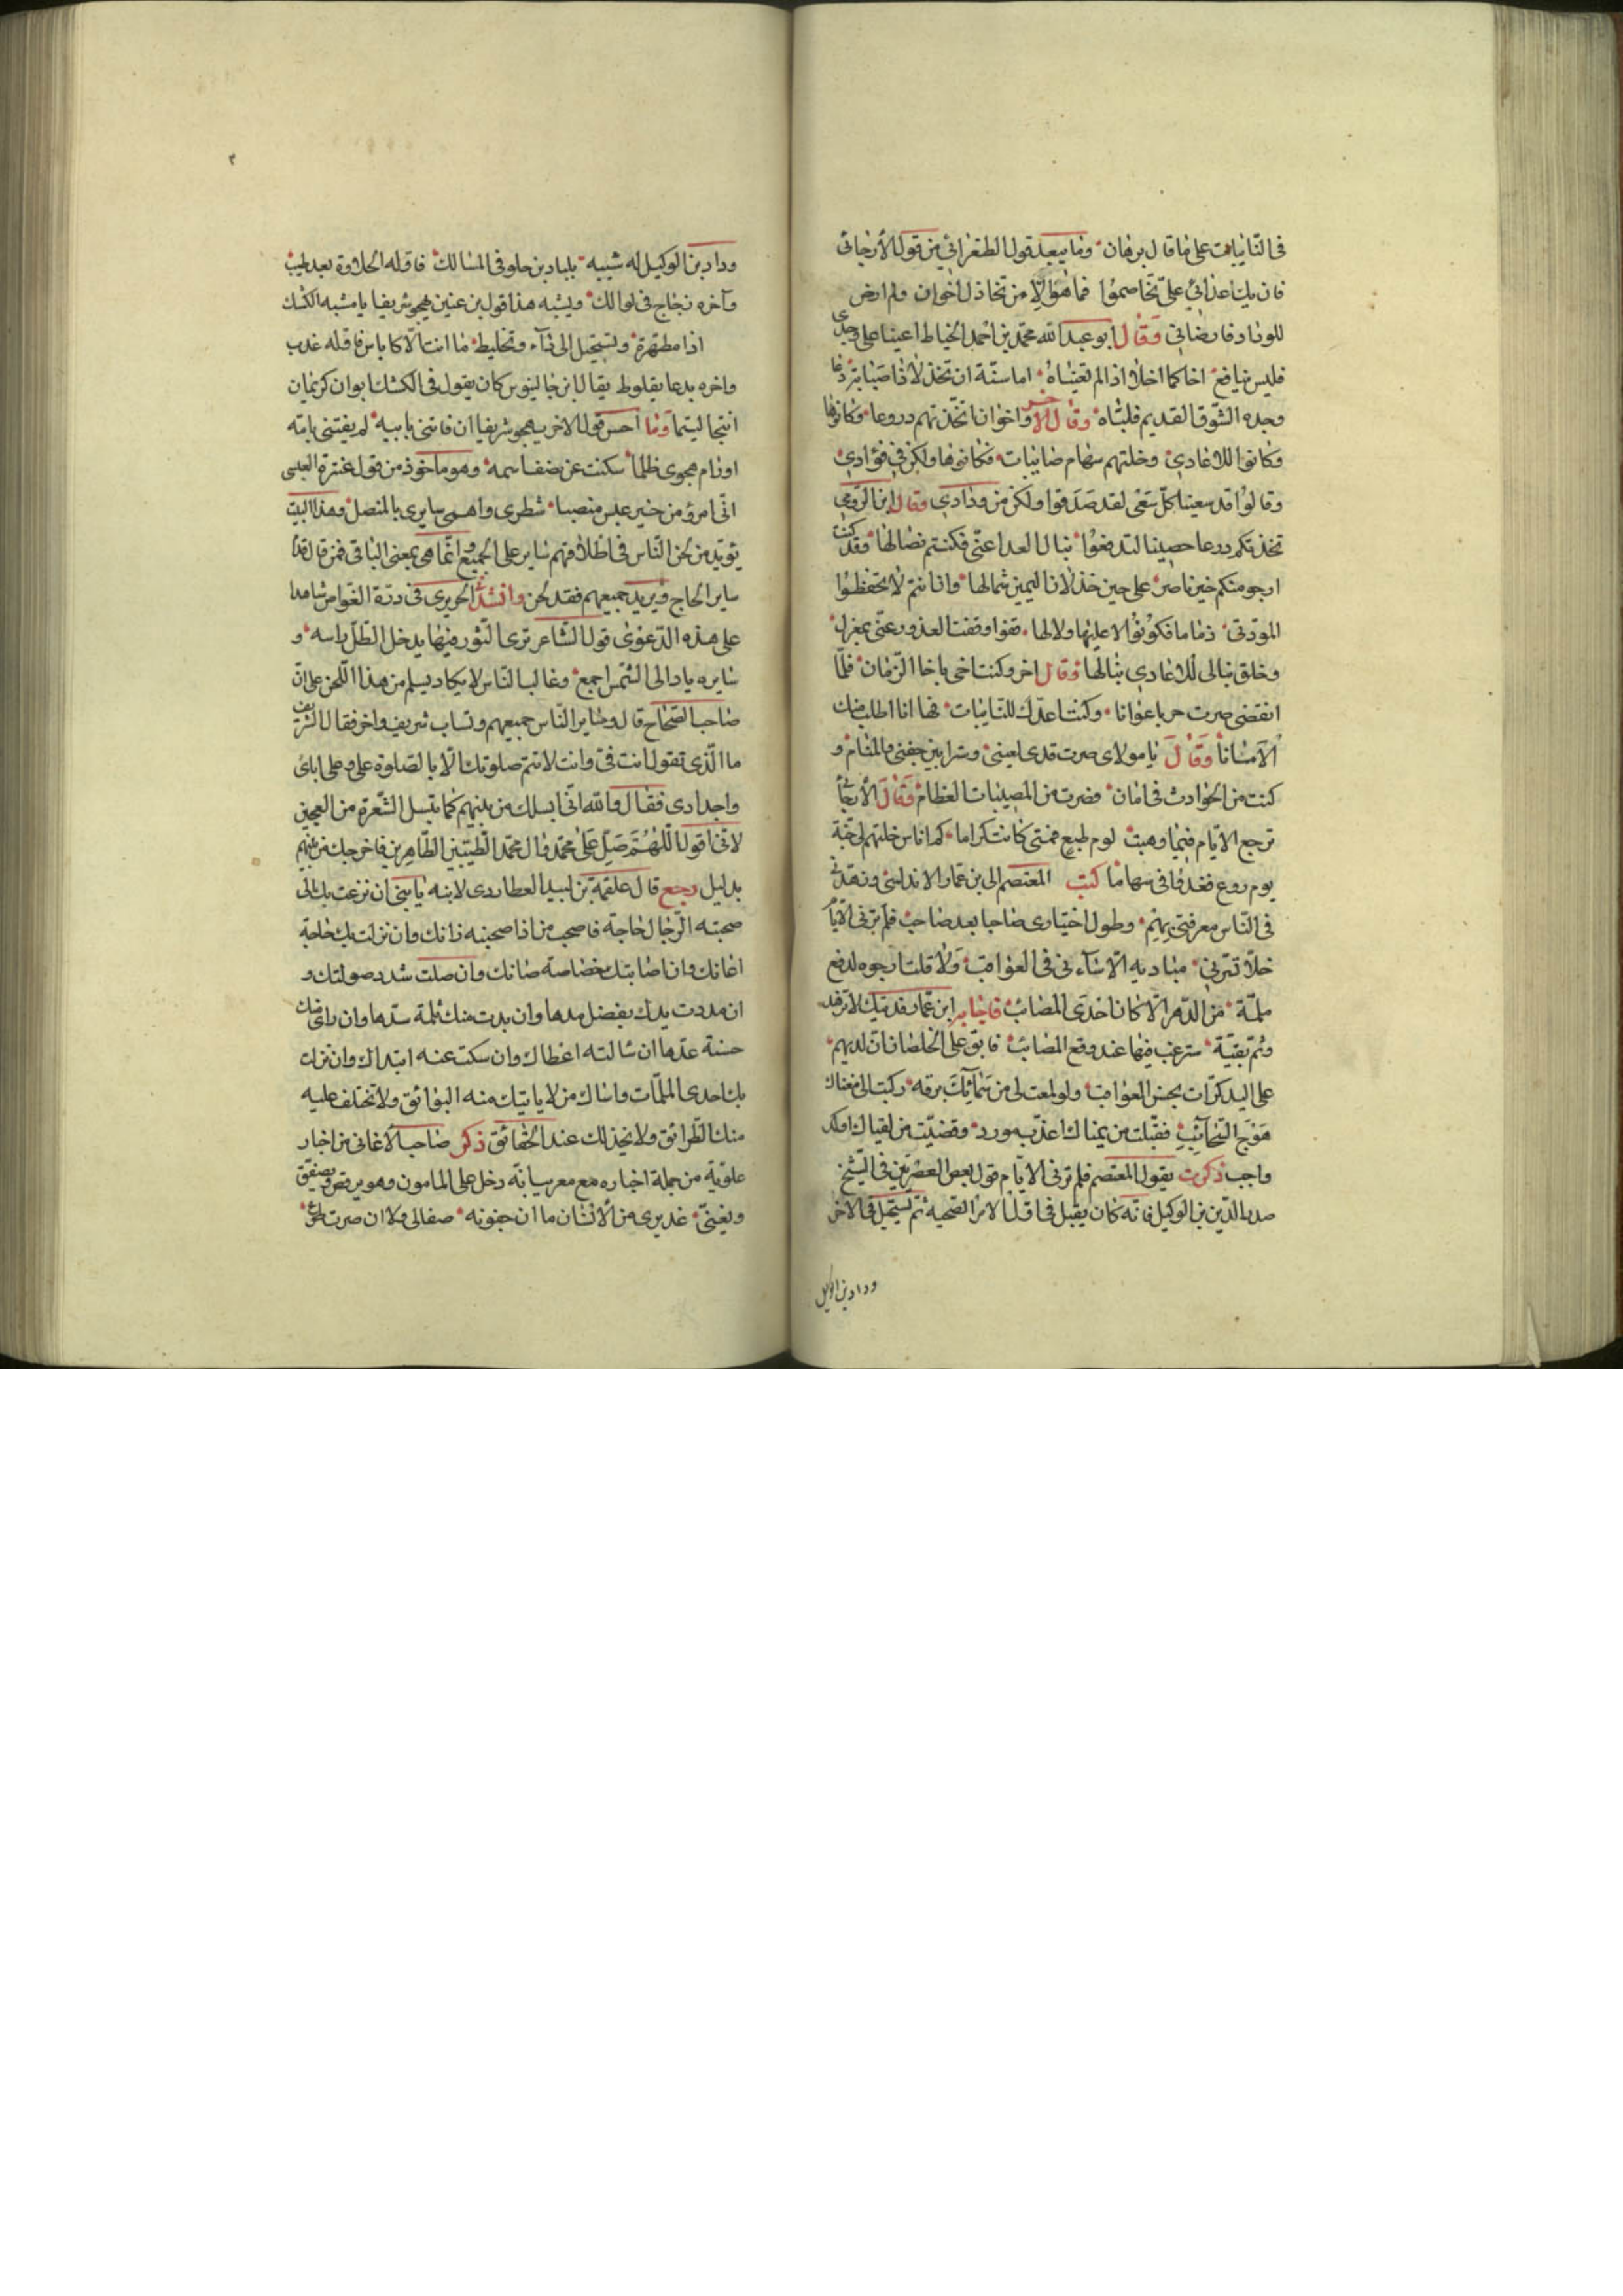 فى النّائبات على ما قال برهان وما يبعد قول الطغرائى من قول الأرجانى
فان يك اعدائى علىّ تخاصموا فما هو الا من تخاذل اخوان ولم ارض
للوداد فارضانى وقال ابو عبد الله محمّد بن احمد الخياط اعينا على وجدى
فليس بنافع اخا كما اخلا اذا لم تعيناه اما سنّة ان تخذلا ذا صبابة دعا
وجده الشّوق القديم فلبّاه وقال الاخر واخوانا تخّذتهم دروعا فكانوها
وكانوا للاعادى وخلتهم سهام صائبات فكانوها ولكن فى فؤادى
وقالوا قد سعينا كلّ سعى لقد صدقوا ولكن من ودادى وقال ابن الرّومى
تخذتكم درعا حصينا لتدفعوا نبال العدا عنّى فكنتم نصالها وقد كنت
ارجو منكم خير ناصر على حين خذلان اليمين شمالها وان انتم لا تحفظوا
المودّتى ذماما فكونوا لا عليها ولا لها قفوا وقفت العذور عنّى بمعزل
وخلّو نبالى للاعادى نبالها وقال اخر وكنت اخى باخا الزّمان فلمّا
انقضى صرت حربا عوانا وكنت اعدّك للنّائبات فها انا اطلب منك
الأمانا وقال يا مولاى صرت قذى لعينى وسترا بين جفنى والمنام و
كنت من الحوادث فى امان فصرت من المصيبات العظام وقال الأرجانى
ترجع الايّام فيما وهبت لوم طبع همّتى كانت كراما كم اناس خلتهم لى جنّة
يوم روع فغدوا فى سهاما كتب المعتصم الى بن عمّار الاندلسى وزهّدنى
فى النّاس معرفتى بهم وطول اختيارى صاحبا بعد صاحب فلم ترنى الايّام
خلّا تسرّنى مباديه الّا ساءنى فى العواقب ولا قلت ارجوه لدفع
ملمّة من الدّهر الّا كان احدى المصائب فاجابه ابن عمّار فديتك لا تزهد
وثم بقيّة سترغب فيها عند وقع المصائب فابق على الخلصان انّ لديهم
على البد كرّات بحسن العواقب ولو لمعت لى من سمائك برقة ركبت الى مغناك
هوج السّحائب فقبّلت من يمناك اعذب مورد وقضيت من لقياك اوكد
واجب ذكرت بقول المعتصم فلم ترنى الايّام قول بعض العصريّين فى الشّيخ
صدر الدّين بن الوكيل فانّه كان يقبل فى اوّل الامر الصّحبة ثم يستحيل فى الاخر
ودادبن الوكيل
وداد بن الوكيل له شبيه بلبادين جلو فى المسالك فاوّله الحلاوة بعد طيب
وآخره زجاج فى لوالك ويشبه هذا قول بن عنين يهجو شريفا يا مشبه الكشك
اذا مطهرة ويستحيل الى ماء وتخليط ما انت الّا كاياس فاوّله غدب
واخره يدعا بقلوط يقال ان جالينوس كان يقول فى الكشك ابوان كريمان
انتجا ليتما وما احسن قول الاخر يهجو شريفا ان فاتنى بابيه لم يفتنى بامّه
اورام هجوى ظلما سكنت عن نصف اسمه وهو ماخوذ من قول عنترة العبسى
انّى امرؤ من خير عبس منصبا شطرى واحمى سايرى بالمنصل وهذا البيت
يؤيّد من لحن النّاس فى اطلاقهم ساير على الجميع وانّما هى بمعنى الباقى فمن قال قدم
ساير الحاج ويريد جميعهم فقد لحن وانشد الحريرى فى درّة الغوّاص شاهدا
على هذه الدّعوى قول الشّاعر ترى الثّور فيها يدخل الظّلّ راسه و
سايره باد الى الشّمس اجمع وغالب النّاس لا يكاد يسلم من هذا اللّحن على انّ
صاحب الصّحاح قال وساير النّاس جميعهم وتساب شريف واخر فقال الشّريف
ما الّذى تقول انت فىّ وانت لا تتم صلوتك الّا بالصّلوة علىّ وعلى ابائى
واجدادى فقال والله انّى اسلك من بينهم كما تسل الشّعرة من العجين
لانّنى اقول اللّهمّ صلّ على محمّد وال محمّد الطّيّبين الطّاهرين فاخرجك من بينهم
بدليل رجع قال علقمة بن لبيد العطاردى لابنه يا بنى ان نزعت بك الى
صحبة الرّجال حاجة فاصحب من اذا صحبته زانك وان نزلت بك حاجة
اعانك وان اصابتك خصاصة صانك وان صلت شدد صولتك و
ان مددت يدك بفضل مدها وان بدت منك ثلمة سدّها وان راى منك
حسنة عدّها ان سالته اعطاك وان سكت عنه ابتداك وان نزلت
بك احدى الملمّات واساك من لا ياتيك منه البوائق ولا تختلف عليه
منك الطّرائق ولا يخذلك عند الحقائق ذكر صاحب الأغانى من اخبار
علوّية من جملة اخباره مع معرسيا انّه دخل على المامون وهو يرقص ويصفّق
ويغنّى عذيرى من الأنسان ما ان جفوته صفا لى ولا ان صرت طوع